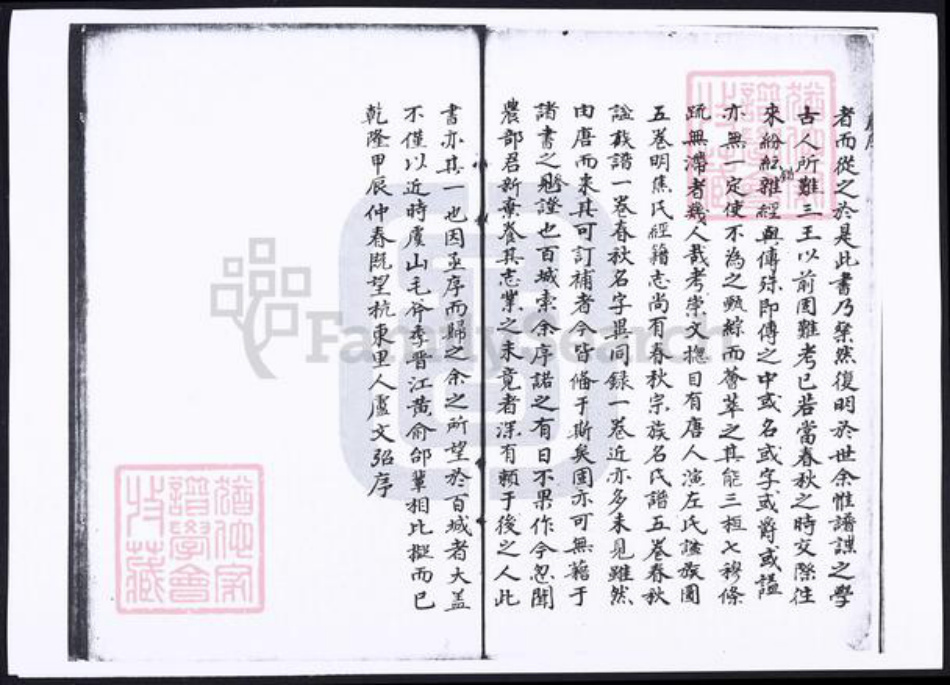 者而從之於是此書乃粲然復明於世余惟譜諜之學
古人所難三王以前固難考已若當春秋之時交際往
來紛紜雜錯經與傳殊即傳之中或名或字或爵或諡
亦無一定使不為之甄綜而薈萃之其能三桓七穆條
疏無滯者幾人哉考崇文總目有唐人演左氏諡族圖
五卷明焦氏經籍志尚有春秋宗族名氏譜五卷春秋
諡族譜一卷春秋名字異同錄一卷近亦多未見雖然
由唐而來其可訂補者今皆備于斯矣固亦可無藉于
諸書之覶證也百城索余序諾之有日不果作今忽聞
農部君新棄養其志業之未竟者深有賴于後之人此
書亦其一也因亟序而歸之余之所望於百城者大蓋
不僅以近時虞山毛斧季晋江黃俞邰輩相比擬而已
乾隆甲辰仲春既望杭東里人盧文弨序
FamilySearch
譜學會
收藏